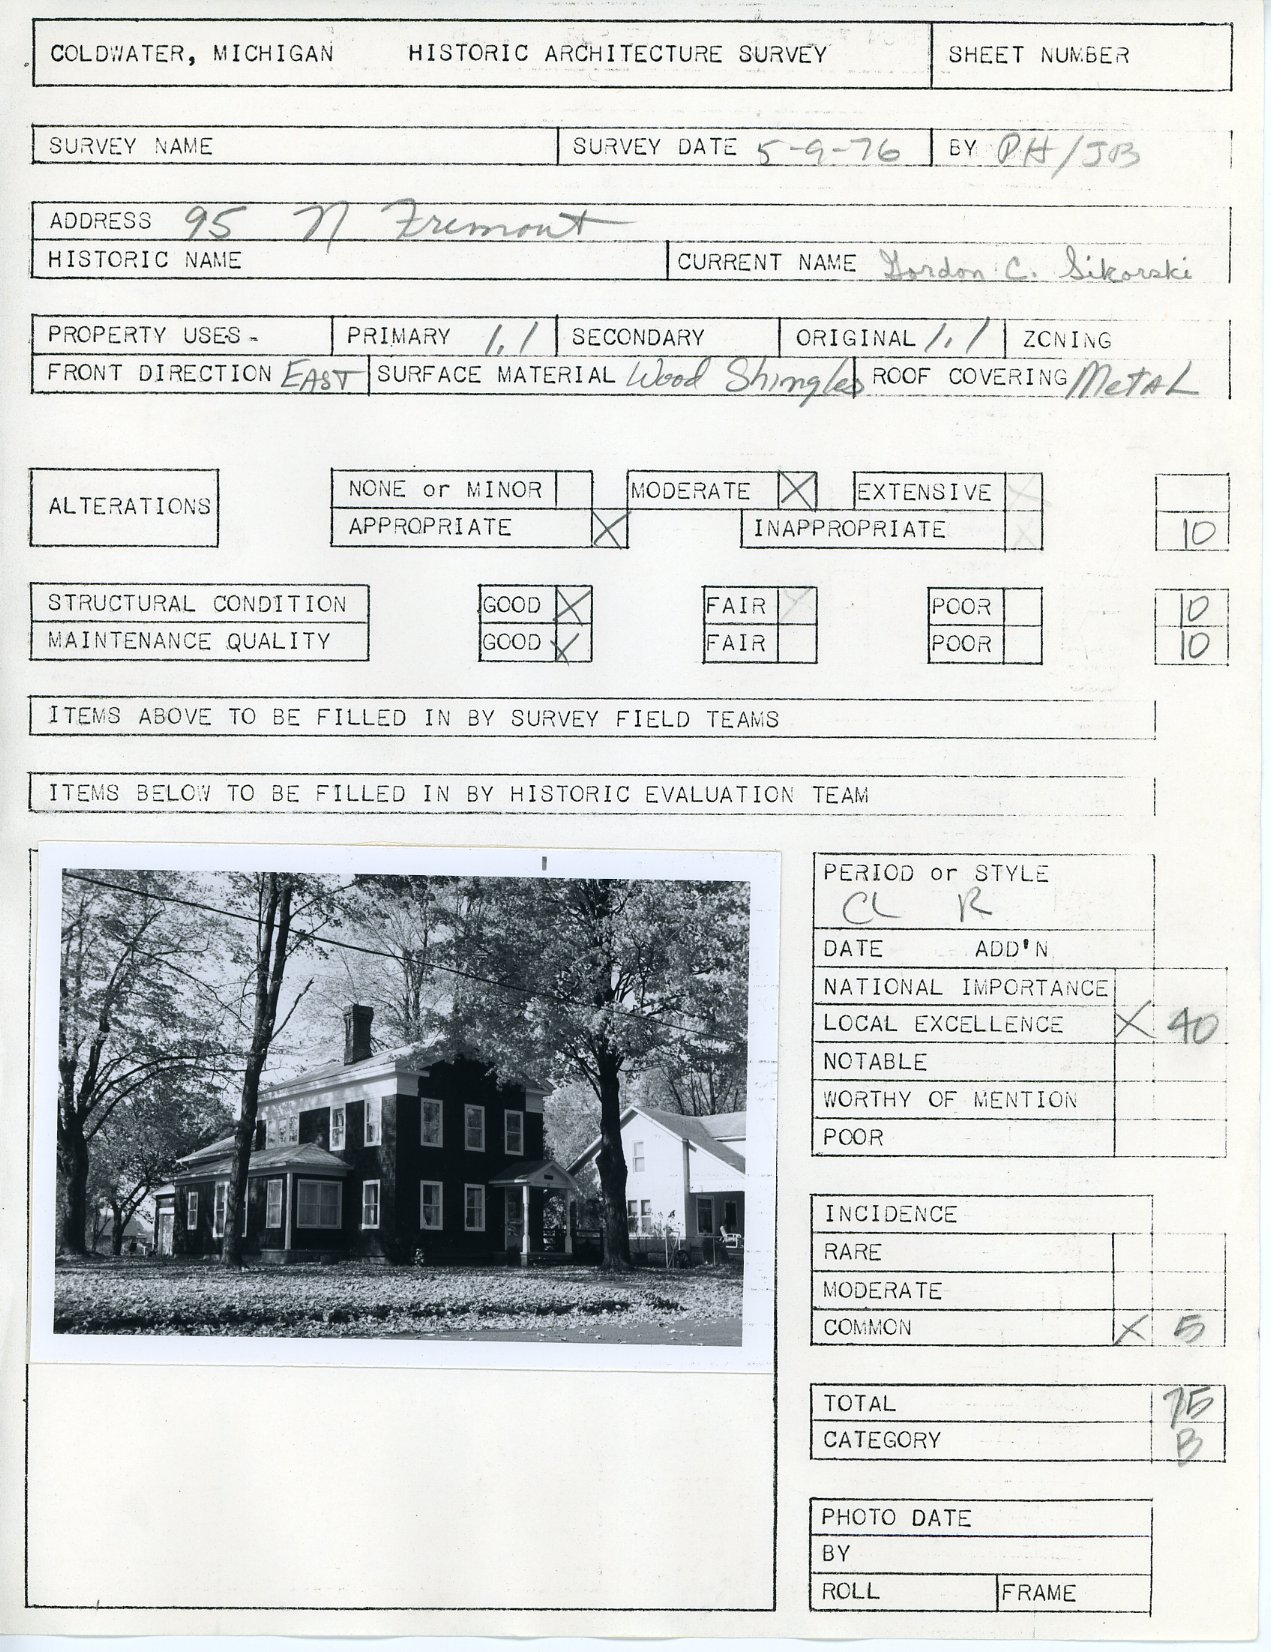 COLDWATER, MICHIGAN HISTORIC ARCHITECTURE SURVEY SHEET NUMBER
SURVEY NAME SURVEY DATE 5-9-76 BY PH/JB
ADDRESS 95 N Fremont
HISTORIC NAME CURRENT NAME Gordon C. Sikorski
PROPERTY USES- PRIMARY 1.1 SECONDARY ORIGINAL 1.1 ZONING
FRONT DIRECTION EAST SURFACE MATERIAL Wood Shingles ROOF COVERING MetAL
NONE or MINOR MODERATE X EXTENSIVE X
ALTERATIONS
APPROPRIATE X INAPPROPRIATE X 10
STRUCTURAL CONDITION GOOD X FAIR X POOR 10
MAINTENANCE QUALITY GOOD X FAIR POOR 10
ITEMS ABOVE TO BE FILLED IN BY SURVEY FIELD TEAMS
ITEMS BELOW TO BE FILLED IN BY HISTORIC EVALUATION TEAM
PERIOD or STYLE
CL R
DATE ADD'N
NATIONAL IMPORTANCE
LOCAL EXCELLENCE X 40
NOTABLE
WORTHY OF MENTION
POOR
INCIDENCE
RARE
MODERATE
COMMON X 5
TOTAL 75
CATEGORY B
PHOTO DATE
BY
ROLL FRAME